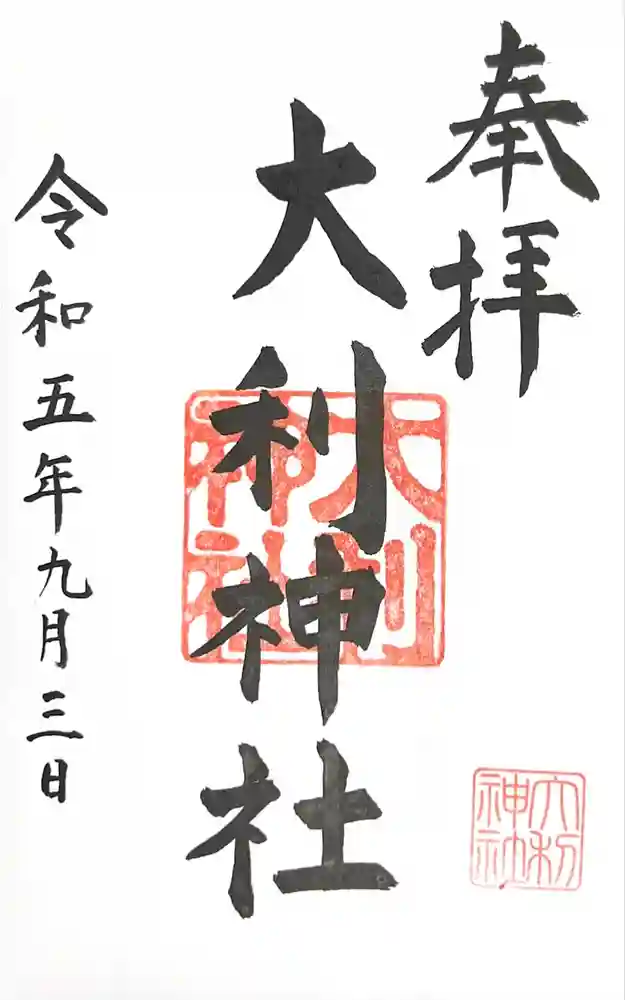 奉拝
大利神社
令和五年九月三日
大利
神社
大利
神社